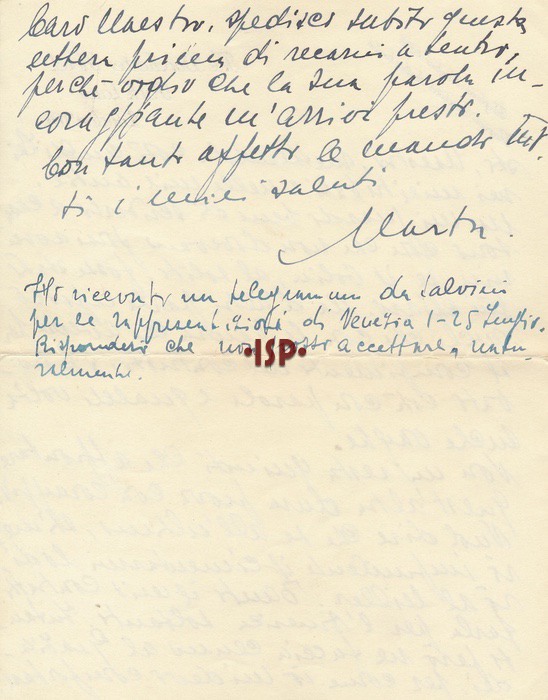 Caro Maestro, spedisci subito questa
lettera prima di recarmi a teatro,
perchè voglio che la sua parola in-
coraggiante m'arrivi presto.
Con tanto affetto Le mando tut-
ti i miei saluti
Marta.
Ho ricevuto un telegramma da Salvini
per le rappresentazioni di Venezia 1-25 Luglio.
Risponderò che non posso accettare, natu-
ralmente.
·ISP·